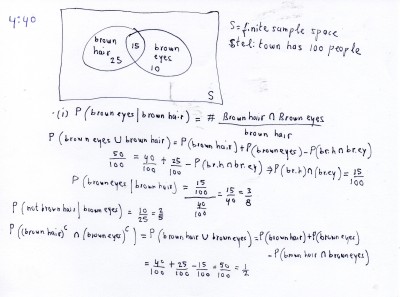 4:40
brown
hair
25
15
brown
eyes
10
S
S = finite sample space
: town has 100 people
(i) P(brown eyes | brown hair) = # Brown hair ∩ Brown eyes / brown hair
P(brown eyes ∪ brown hair) = P(brown hair) + P(brown eyes) - P(br.h ∩ br.ey)
50/100 = 40/100 + 25/100 - P(br.h ∩ br.ey) ⇒ P(br.h) ∩ (br.ey) = 15/100
P(brown eyes | brown hair) = 15/100 / 40/100 = 15/40 = 3/8
P(not brown hair | brown eyes) = 10/25 = 2/5
P((brown hair)^c ∩ (brown eyes)^c) = P(brown hair ∪ brown eyes) = P(brown hair) + P(brown eyes)
- P(brown hair ∩ brown eyes)
= 40/100 + 25/100 - 15/100 = 50/100 = 1/2